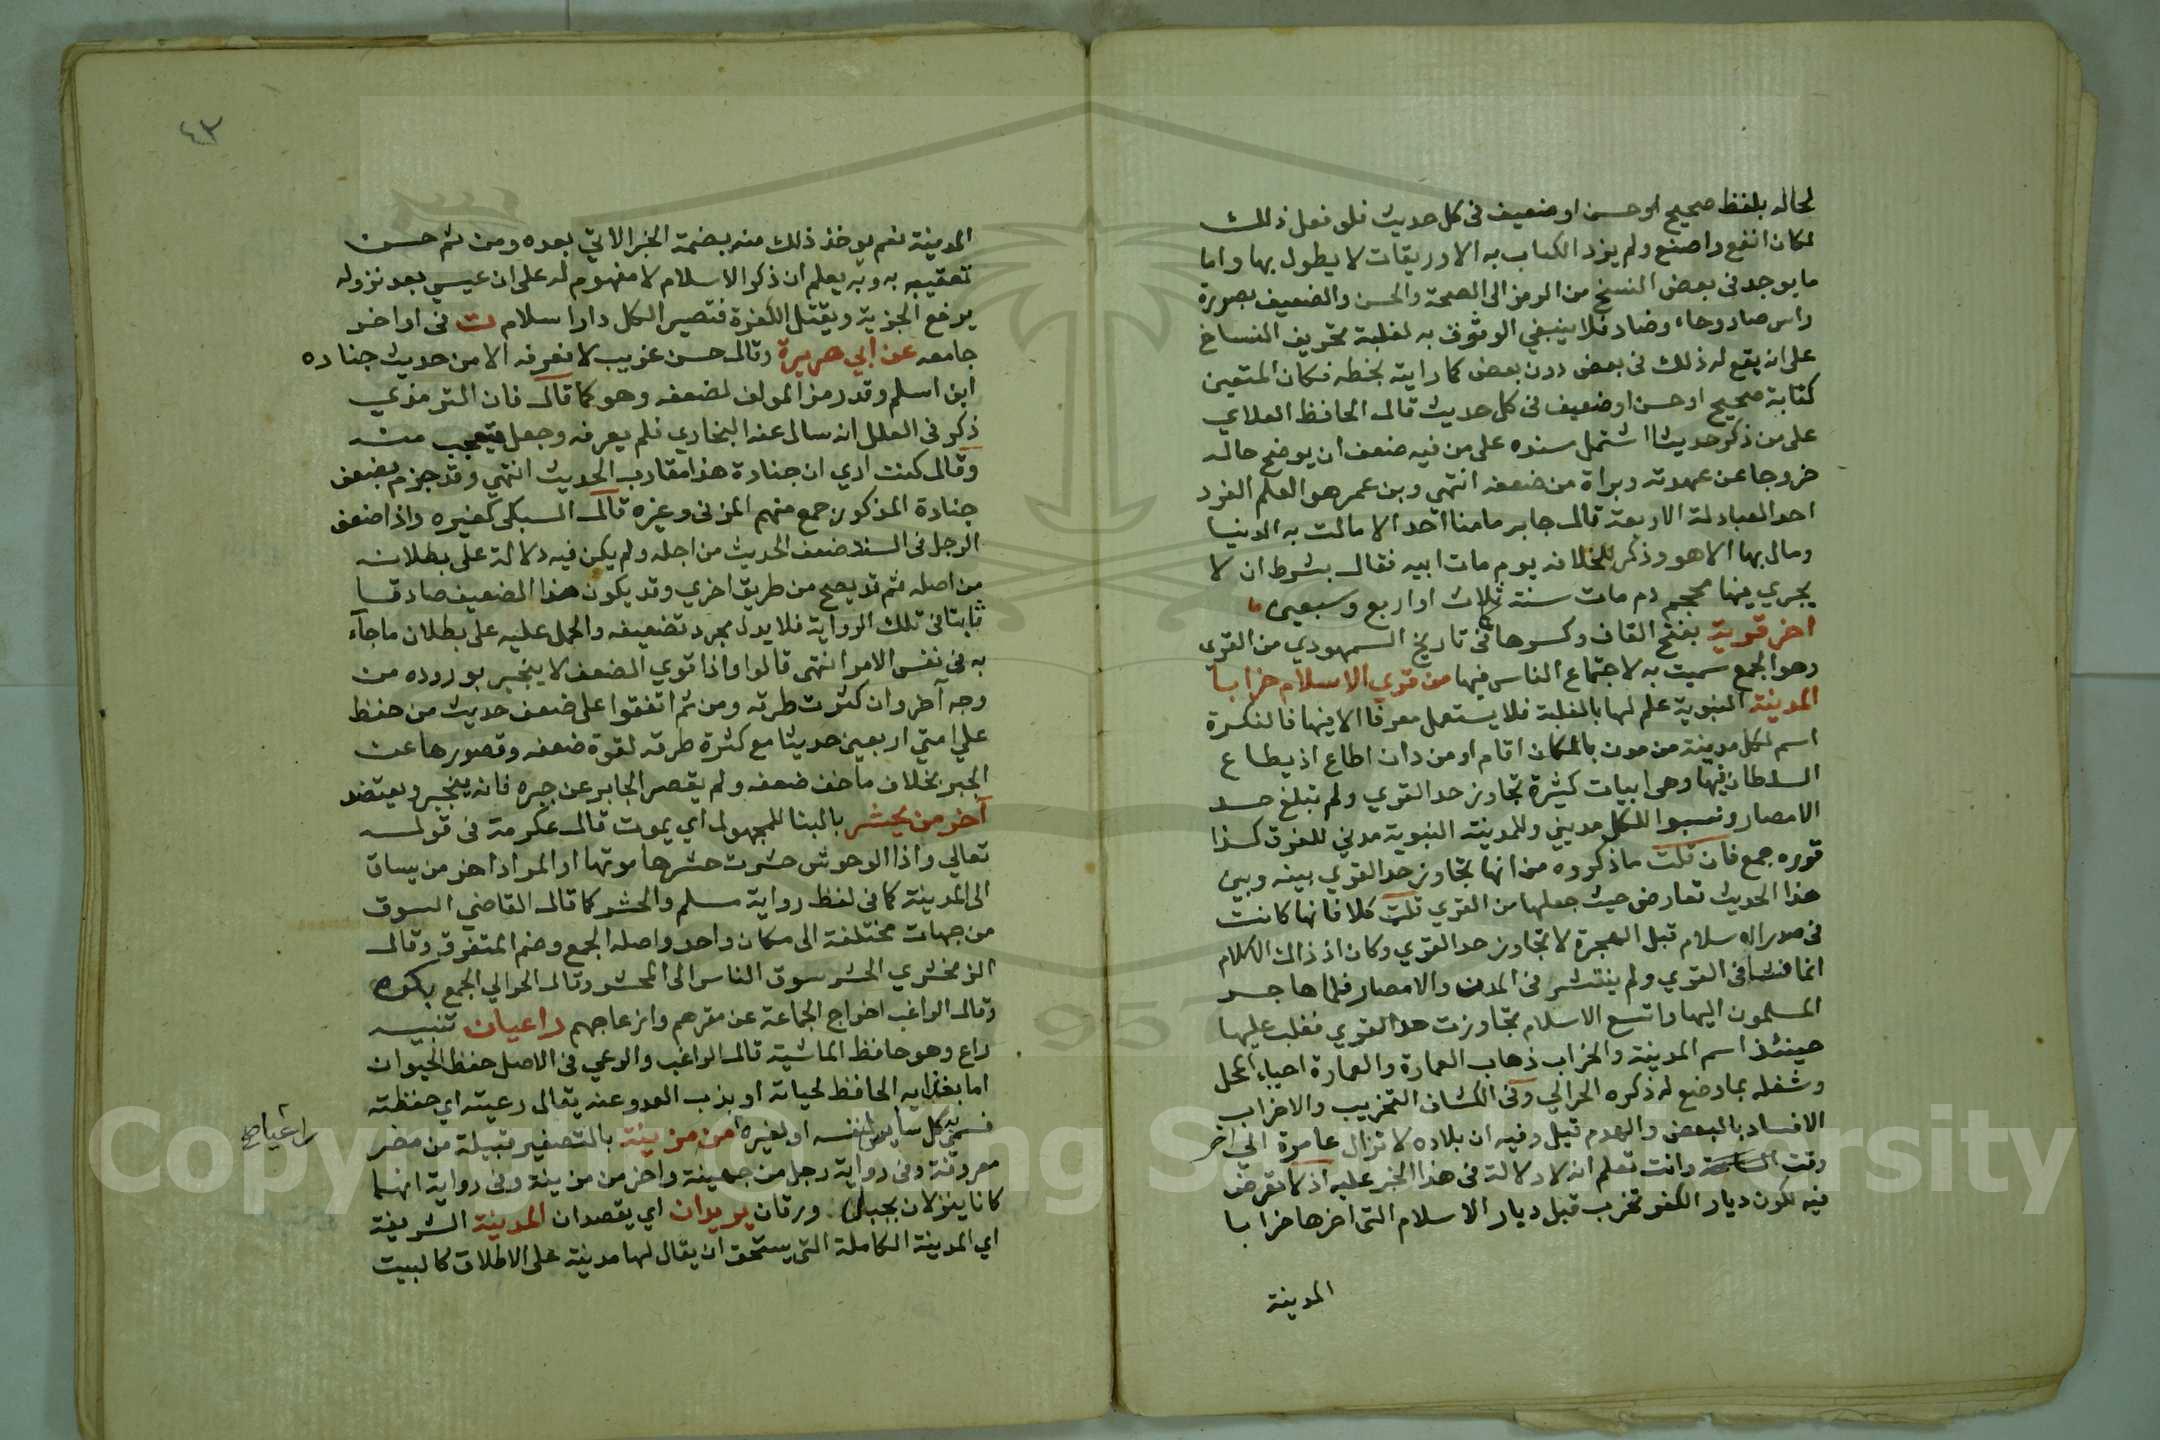 لحاله بلفظ صحيح او حسن او ضعيف في كل حديث فلو فعل ذلك
لكان انفع واصنع ولم يزد الكتاب به الا وريقات لا يطول بها واما
ما يوجد في بعض النسخ من الرمز الى الصحة والحسن والضعيف بصورة
راس صاد وحاء وضاد فلا ينبغي الوثوق به لغلبة تحريف النساخ
على انه يقع له ذلك في بعض دون بعض كما رايته بخطه فكان المتعين
كتابة صحيح او حسن او ضعيف في كل حديث قال الحافظ العلاي
على من ذكر حديثا اشتمل سنده على من فيه ضعف ان يوضح حاله
خروجا عن عهدته وبراة من ضعفه انتهي وبن عمر هو العلم الفرد
احد العبادلة الاربعة قال جابر ما منا احد الا مالت به الدنيا
ومال بها الا هو وذكر للخلافه يوم مات ابيه فقال بشرط ان لا
يجري فيها محجم دم مات سنة ثلاث او اربع وسبعين
اخر قرية بفتح القاف وكسرها في تاريخ السمهودي من القري
وهو الجمع سميت به لاجتماع الناس فيها من قري الاسلام خرابا
المدينة النبوية علم لها بالغلبة فلا يستعمل معرفا الا فيها فالنكرة
اسم لكل مدينة من مدن بالمكان اقام او من دان اطاع اذ يطاع
السلطان فيها وهي ابيات كثيرة تجاوز حد القري ولم تبلغ حد
الامصار ونسبوا للكل مديني وللمدينة النبوية مدني للفرق كذا
قرره جمع فان قلت ما ذكروه من انها تجاوز حد القري بينه وبين
هذا الحديث تعارض حيث جعلها من القري قلت كلا فانها كانت
في صدر الاسلام قبل الهجرة لا تجاوز حد القري وكان اذ ذاك الكلام
انما فشا في القري ولم ينتشر في المدن والامصار فلما هاجر
المسلمون اليها واتسع الاسلام تجاوزت حد القري فغلب عليها
حينئذ اسم المدينة والخراب ذهاب العمارة والعمارة احياء المحل
وشغله بما وضع له ذكره الحرالي وفي الكشاف التخريب والاخراب
الافساد بالبعض والهدم قبل وفيه ان بلاده لا تزال عامرة الى اخر
وقت الساعة وانت تعلم انه لا دلالة في هذا الخبر عليه اذ لا تعرض
فيه لكون ديار الكفر تخرب قبل ديار الاسلام التي اخرها خرابا
المدينة
٤٣
المدينة نعم يوخذ ذلك منه بضمة الخبر الاتي بعده ومن ثم حسن
تعقيبه به وبه يعلم ان ذكر الاسلام لا مفهوم له على ان عيسي بعد نزوله
يرفع الجزية ويقتل الكفرة فتصير الكل دار اسلام ت في اواخر
جامعه عن ابي هريرة وقال حسن غريب لا نعرفه الا من حديث جناده
ابن اسلم وقد رمز المولف لضعفه وهو كما قال فان الترمذي
ذكر في العلل انه سال عنه البخاري فلم يعرفه وجعل يتعجب منه
وقال كنت اري ان جنادة هذا مقارب الحديث انتهي وقد جزم بضعف
جنادة المذكور جمع منهم المزني وغيره قال السبكي كغيره واذا ضعف
الرجل في السند ضعف الحديث من اجله ولم يكن فيه دلالة على بطلانه
من اصله ثم قد يصح من طريق اخري وقد يكون هذا الضعيف صادقا
ثابتا في تلك الرواية فلا يدل مجرد تضعيفه والحمل عليه على بطلان ما جآء
به في نفس الامر انتهى قالوا واذا قوي الضعف لا ينجبر بوروده من
وجه آخر وان كثرت طرقه ومن ثم اتفقوا على ضعف حديث من حفظ
علي امتي اربعين حديثا مع كثرة طرقه لقوة ضعفه وقصورها عن
الجبر بخلاف ما خف ضعفه ولم يقصر الجابر عن جبره فانه ينجبر ويعتضد
آخر من يحشر بالبنا للمجهول اي يموت قال عكرمة في قوله
تعالي واذا الوحوش حشرت حشرها موتها او المراد اخر من يساق
الى المدينة كما في لفظ رواية مسلم والحشر كما قال القاضي السوق
من جهات مختلفة الى مكان واحد واصله الجمع وضم المتفرق وقال
الزمخشري الحشر سوق الناس الى المحشر وقال الحرالي الجمع بكره
وقال الراغب اخراج الجماعة عن مقرهم وازعاجهم راعيان تثنيه
راع وهو حافظ الماشية قال الراغب والرعي في الاصل حفظ الحيوان
اما بغذايه الحافظ لحياته او بذب العدو عنه يقال رعيته اي حفظته
فسمي به كل سايس لنفسه او لغيره من مزينة بالتصغير قبيلة من مضر
راعيا صح
معروفة وفي رواية رجل من جهينة واخر من مزينة وفي رواية انهما
كانا ينزلان بجبل ورقان يريدان اي يقصدان المدينة الشريفة
اي المدينة الكاملة التي يستحق ان يقال لها مدينة على الاطلاق كالبيت
Copyright © King Saud University
1957